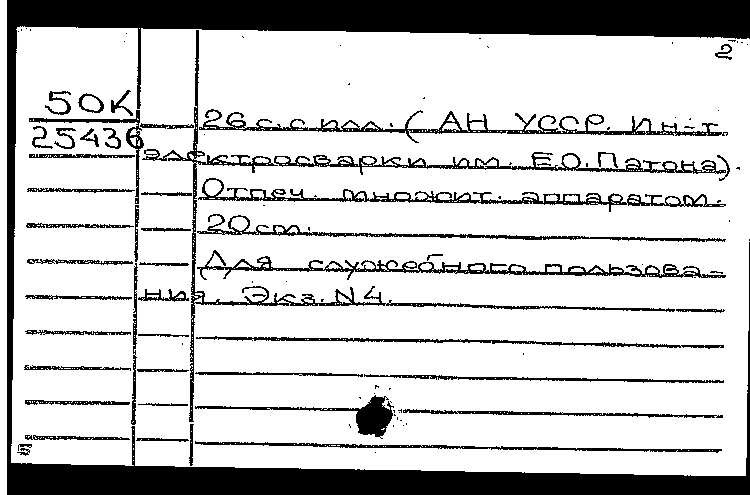 2
50К
25436
26 с. с илл. ( АН УССР. Ин-т
электросварки им. Е.О. Патона).
Отпеч. множит. аппаратом.
20 см.
Для служебного пользова-
ния. Экз. N 4.